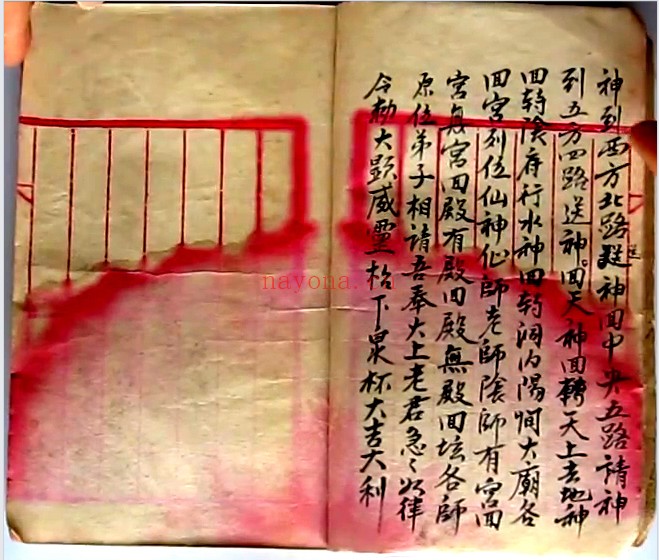 神到西方北路送神回中央五路請神
到五方四路送神回天神回轉天上去地神
回轉陰府行水神回轉洞內陽間大廟各
回宮列位仙神仙師老師陰師有宮回
宮無宮回殿有殿回殿無殿回坛各師
原位弟子相請吾奉大上老君急〻如律
令勅大顯威灵抬下泉杯大吉大利
nayona.cn